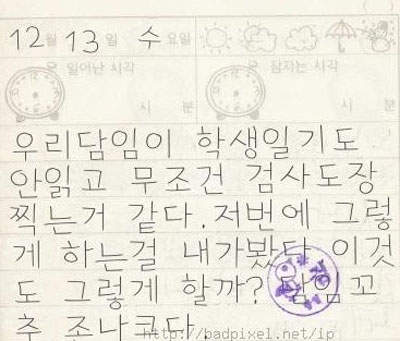 12월 13일 수요일
오늘 일어난 시각 오늘 잠자는 시각
시 분 시 분
우리담임이 학생일기도
안읽고 무조건 검사도장
찍는거 같다. 저번에 그렇
게 하는걸 내가봤다 이것
도 그렇게 할까? 담임꼬
추 존나크다.
http://badpixel.net/ip